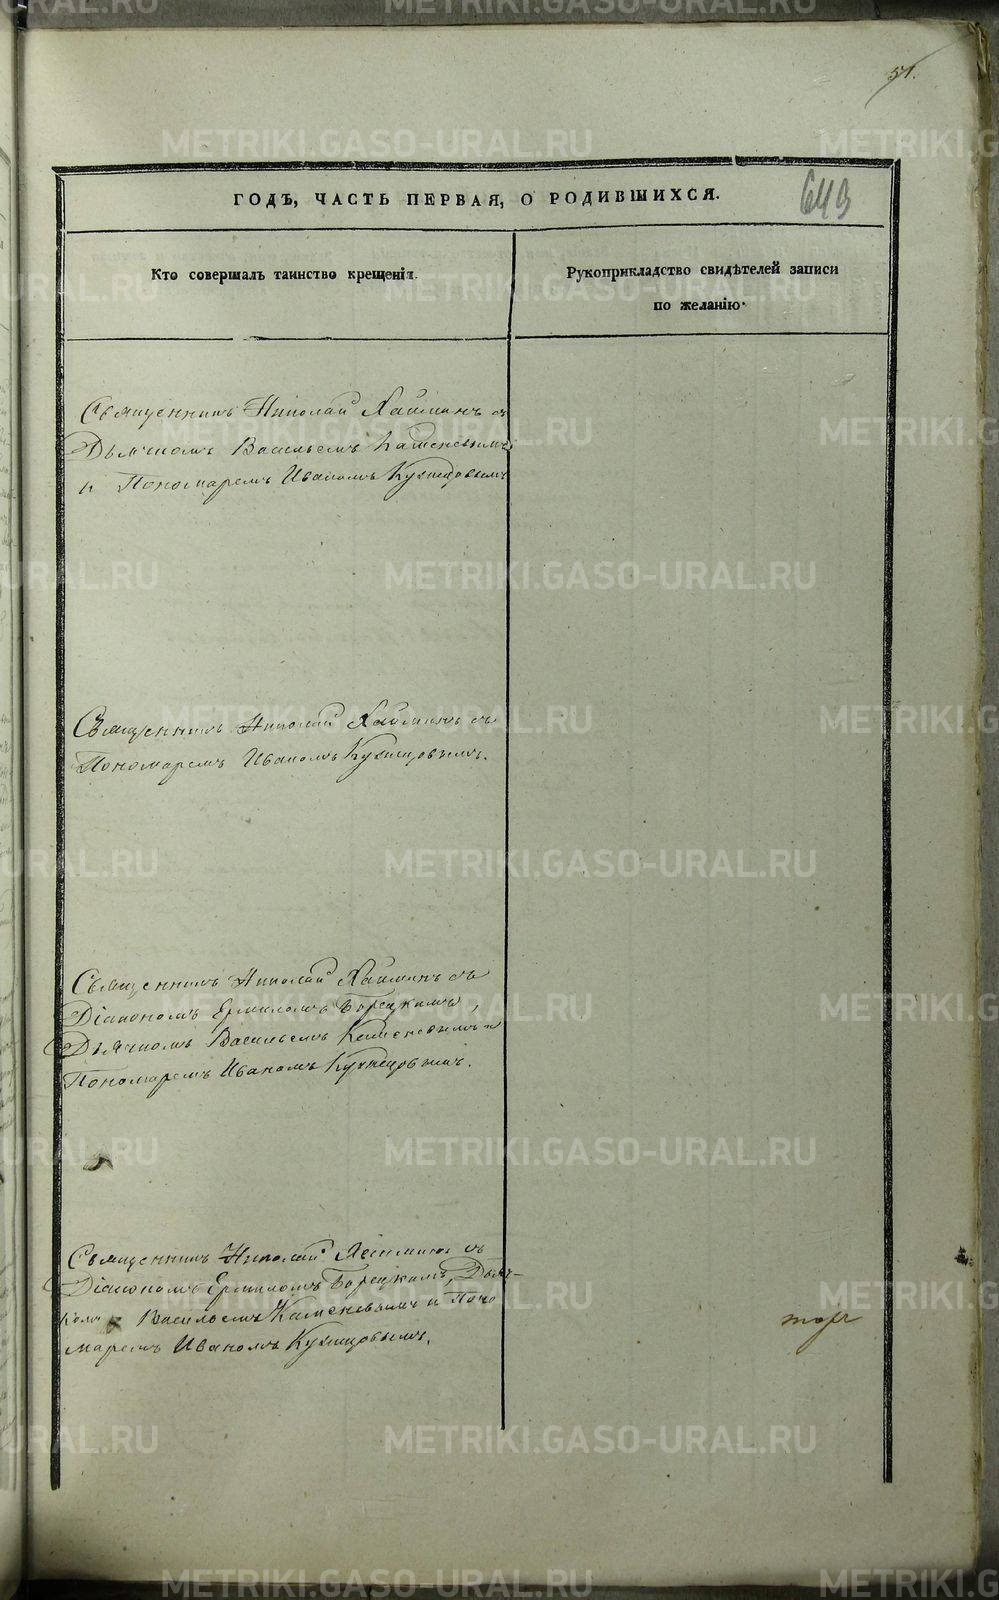 51.
643
ГОДЪ, ЧАСТЬ ПЕРВАЯ, О РОДИВШИХСЯ.
Кто совершалъ таинство крещенія.
Рукоприкладство свидѣтелей записи
по желанію.
Священникъ Николай Хаймин съ
Дьячкомъ Васильемъ Каменевымъ
и Пономаремъ Иваномъ Кузнецовымъ
Священникъ Николай Хаймин съ
Пономаремъ Иваномъ Кузнецовымъ.
Священникъ Николай Хаймин съ
Діакономъ Ермиломъ Борецкимъ,
Дьячкомъ Васильемъ Каменевымъ и
Пономаремъ Иваномъ Кузнецовымъ.
Священникъ Николай съ
Діакономъ Ермиломъ Борецкимъ, Дьяч-
комъ Васильемъ Каменевымъ и Поно
маремъ Иваномъ Кузнецовымъ.
METRIKI.GASO-URAL.RU